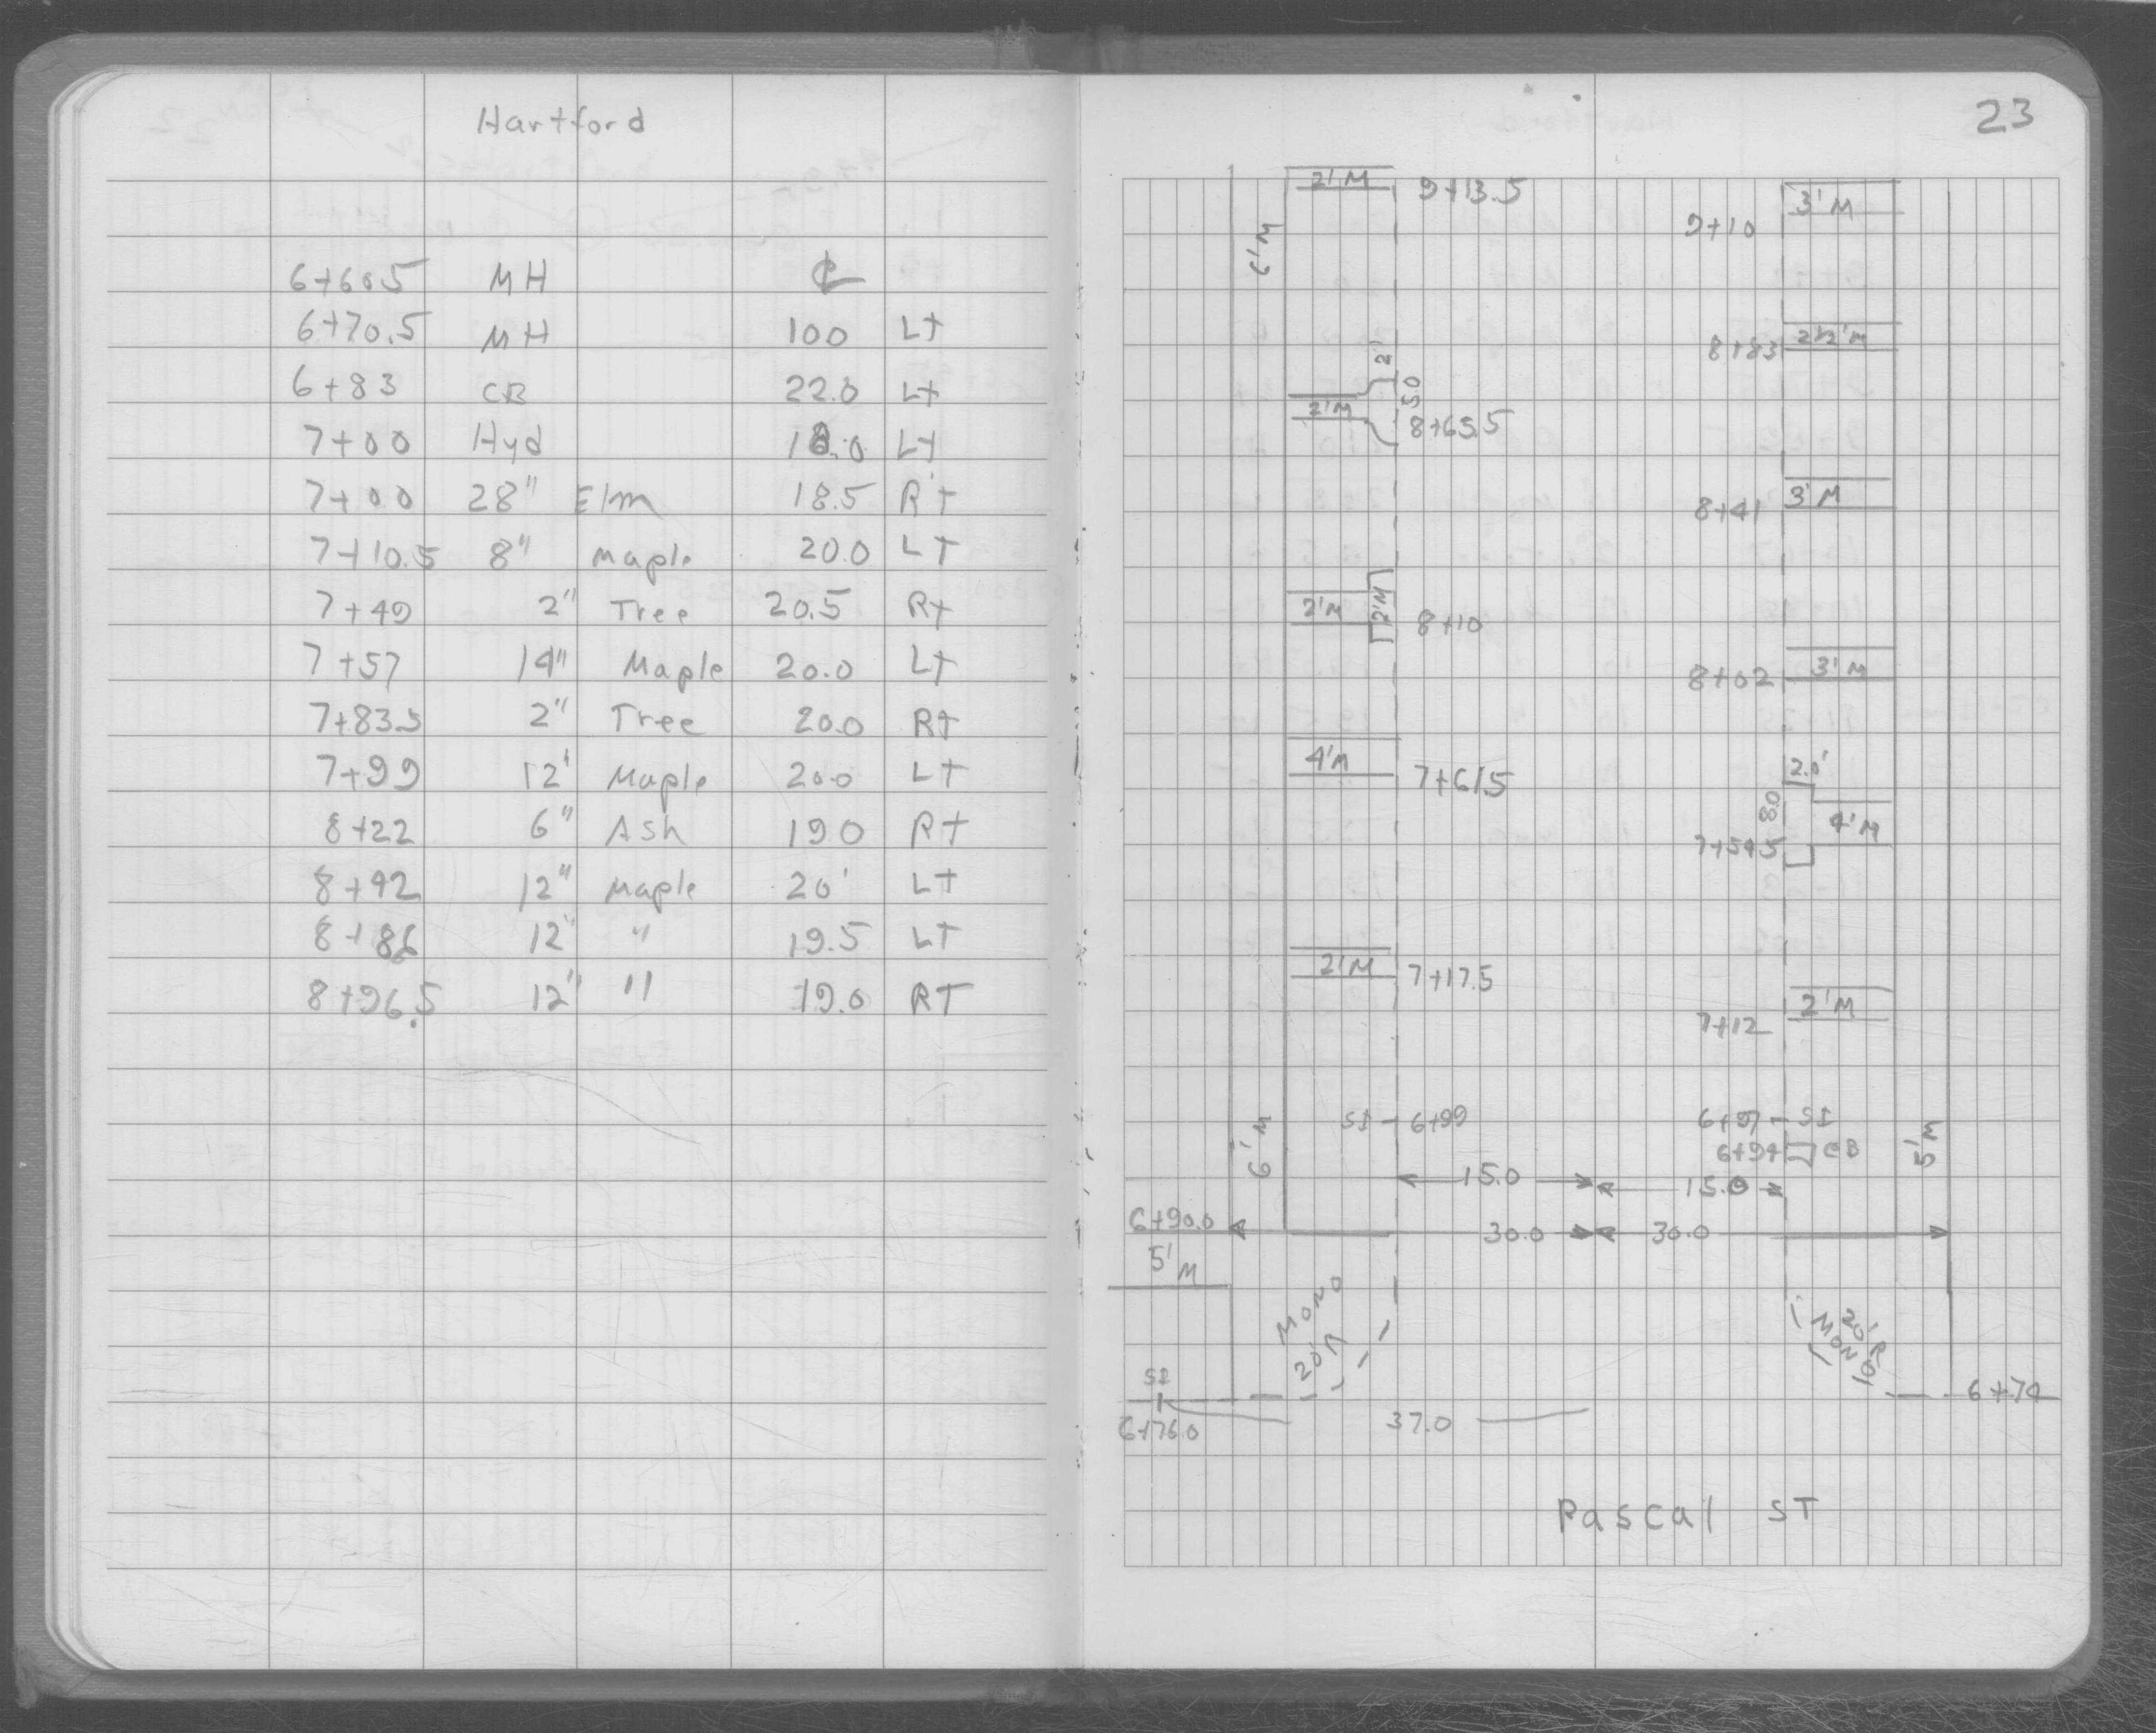 Hartford
6+60.5 MH ℄
6+70.5 MH 10.0 LT
6+83 CB 22.0 Lt
7+00 Hyd 18.0 LT
7+00 28" Elm 18.5 RT
7+10.5 8" Maple 20.0 LT
7+49 2" Tree 20.5 RT
7+57 14" Maple 20.0 LT
7+83.5 2" Tree 20.0 RT
7+99 12' Maple 20.0 LT
8+22 6" Ash 19.0 RT
8+42 12" Maple 20' LT
8+86 12" " 19.5 LT
8+96.5 12" " 19.0 RT
23
2'M 9+13.5
3'M
6'M
9+10
2'
8+83 2½'M
5.0
2'M 8+65.5
3'M
8+41
2'M 2'M 8+10
8+02 3'M
4'M 7+61.5
2.0'
8.0 4'M
7+54.5
2'M 7+17.5
7+12 2'M
SI 6+99
6+97 SI
6+94 CB
6'M
5'M
15.0 15.0
6+90.0 30.0 30.0
5'M
MONO
20'R
20'R
MONO
SI
6+76.0
37.0
6+74
Pascal ST